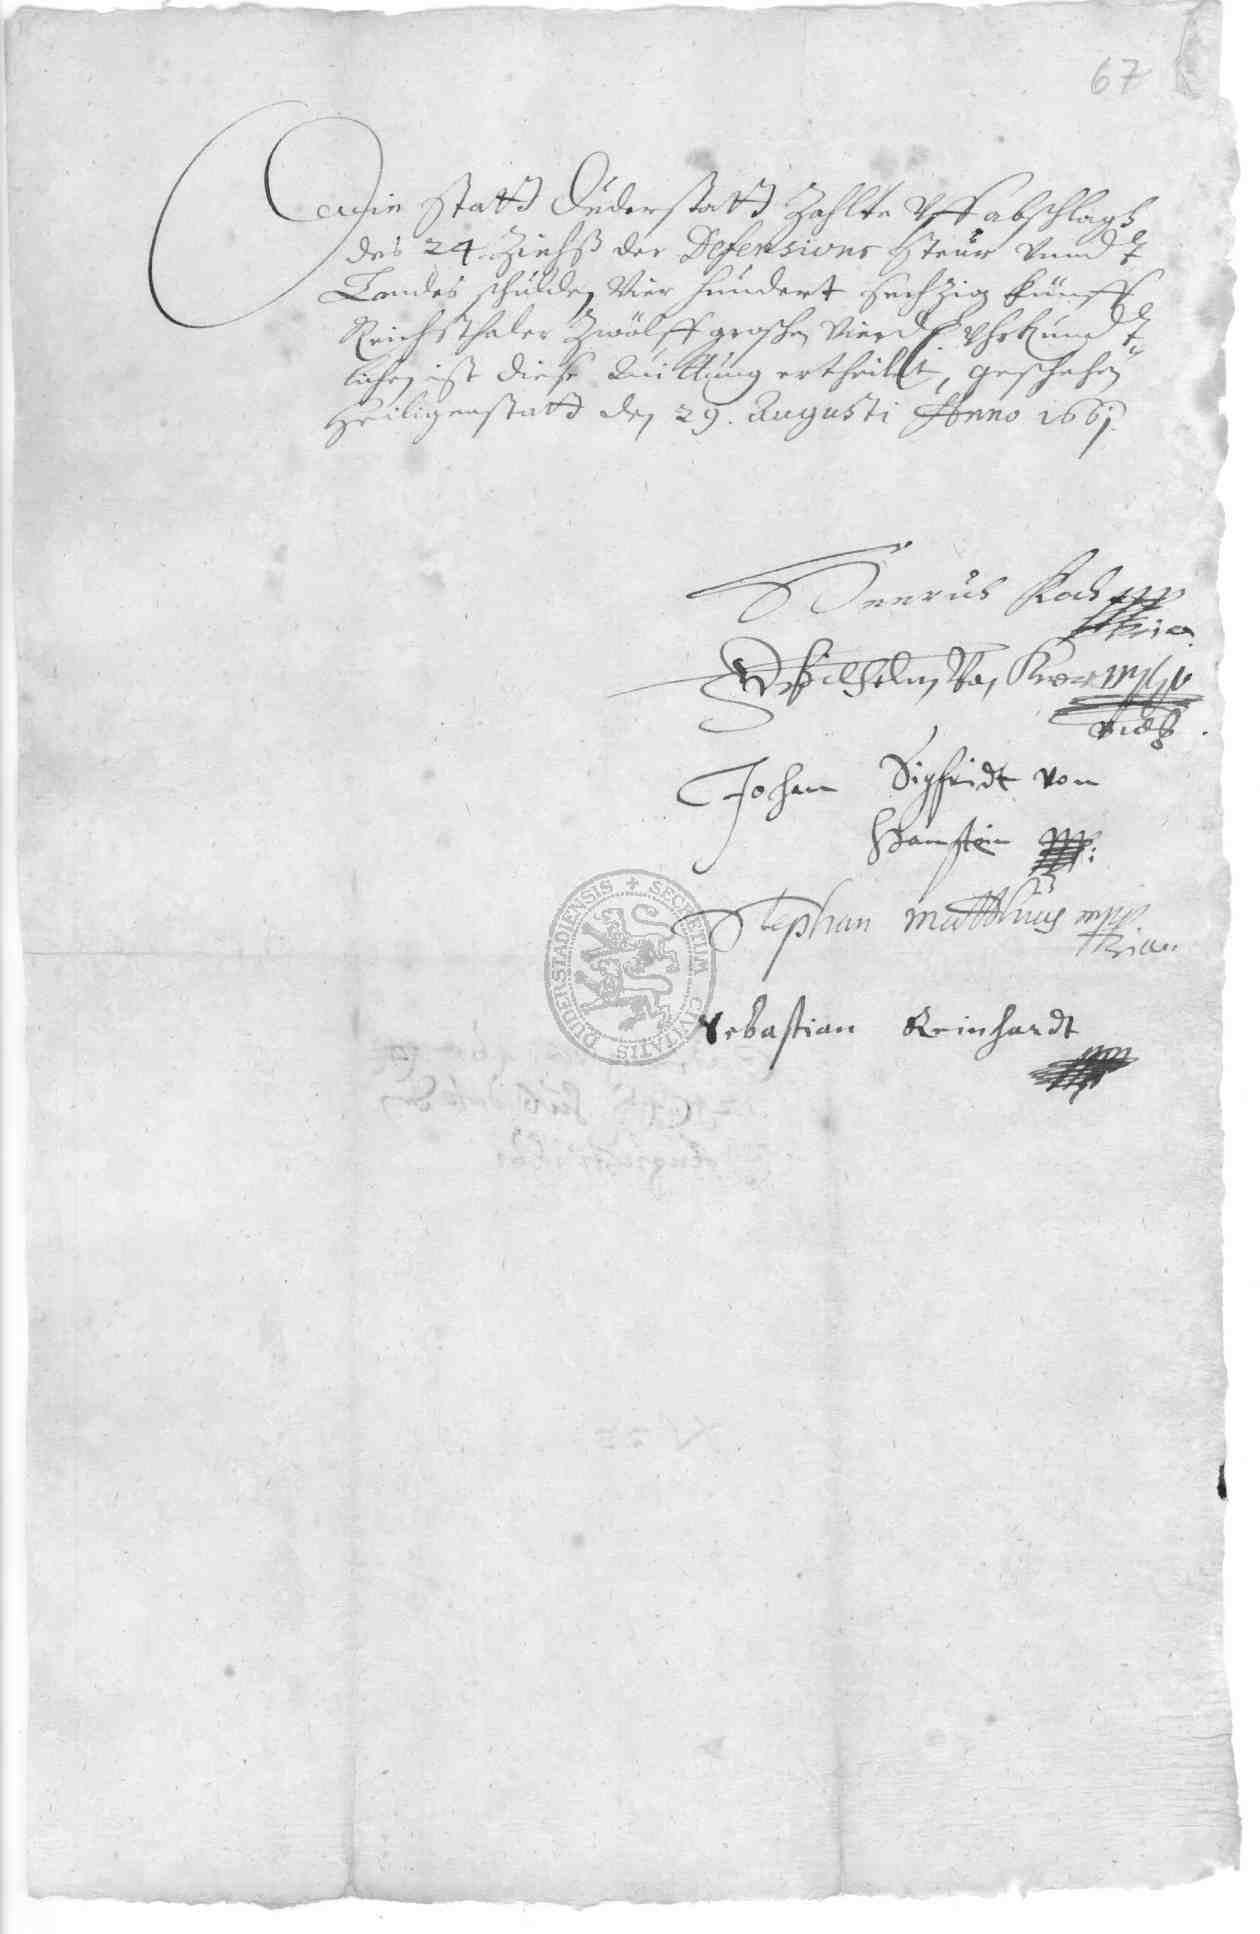 67
Die Statt Duderstatt Zahlte Uff abschlagh
des 24. Ziehlß der Defensions Steur unndt
Landes schulden Vier hundert sechzig fünff
Reichsthaler Zwölff groschen Vierd. Uhrkundt
lichen ist diese Quittung ertheilet, geschehen
Heiligenstatt den 29. Augusti Anno 1661.
Henrich Koch mpp
Wilhelm
Johan Sigfridt von
Hanstein mpp
Stephan Matthæus mpp
Sebastian Reinhardt
mpp
SECRETUM CIVITATIS DUDERSTADIENSIS